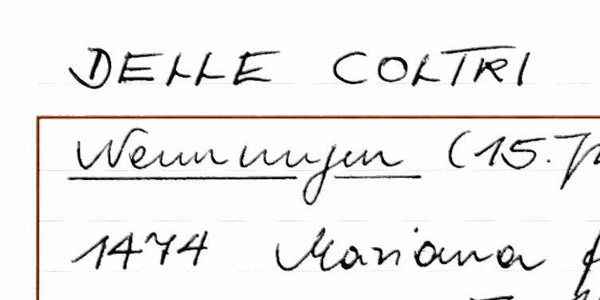 DELLE COLTRI
Nennungen (15.
1474 Mariana